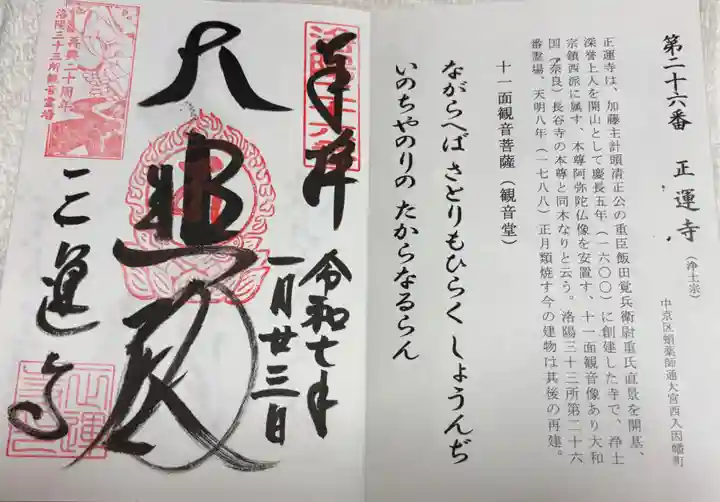 第二十六番　正運寺（浄土宗）
中京区蛸薬師通大宮西入因幡町
正運寺は、加藤主計頭清正公の重臣飯田覚兵衛尉重氏直景を開基、
深誉上人を開山として慶長五年（一六〇〇）に創建した寺で、浄土
宗鎮西派に属す、本尊阿弥陀仏像を安置す、十一面観音像あり大和
国（奈良）長谷寺の本尊と同木なりと云う。洛陽三十三所第二十六
番霊場、天明八年（一七八八）正月類焼す今の建物は其後の再建。
十一面観音菩薩（観音堂）
ながらへば さとりもひらく しょうんぢ
いのちやのりの たからなるらん
奉拝
令和七年
一月廿三日
大悲殿
正運寺
再興二十周年
洛陽三十三所観音霊場